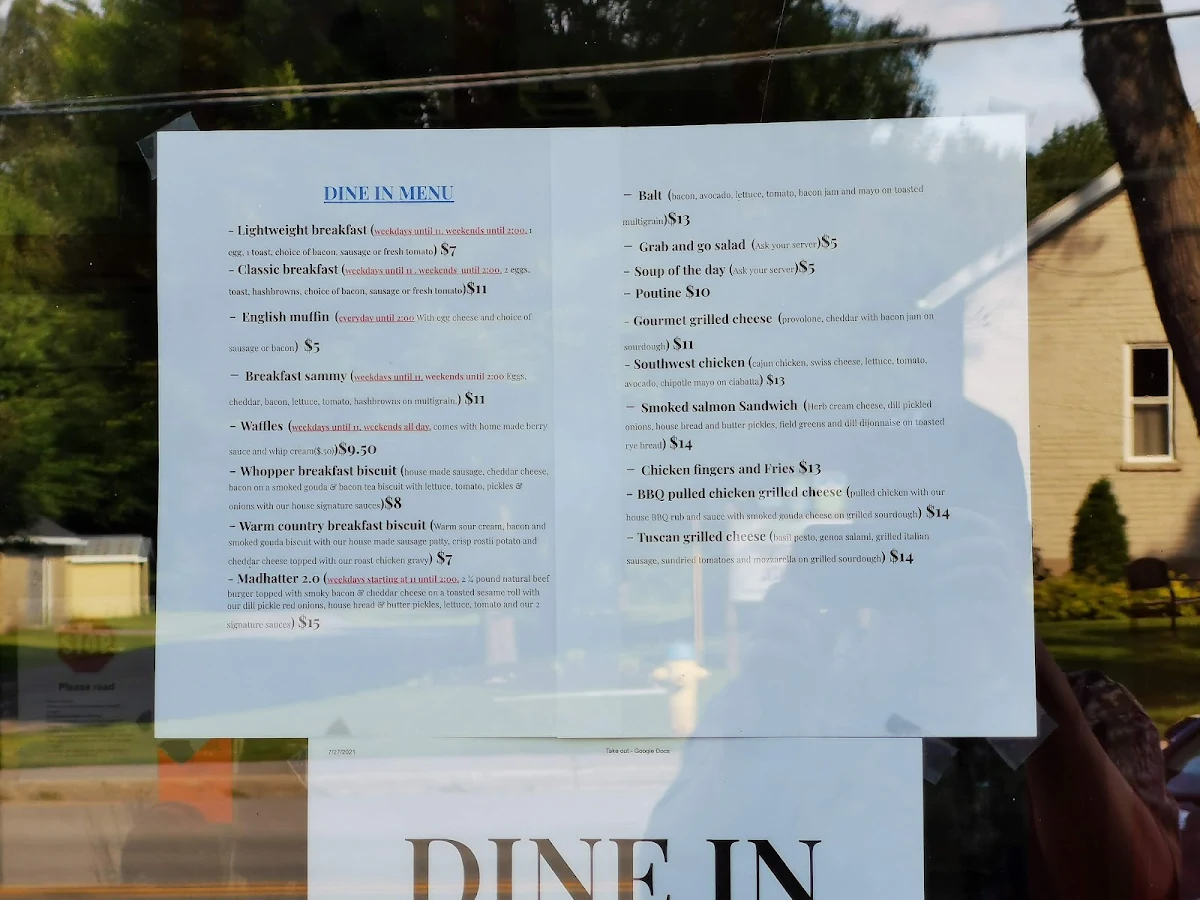 DINE IN MENU
- Lightweight breakfast (weekdays until 11, weekends until 2:00, 1
egg, 1 toast, choice of bacon, sausage or fresh tomato) $7
- Classic breakfast (weekdays until 11 , weekends until 2:00, 2 eggs,
toast, hashbrowns, choice of bacon, sausage or fresh tomato)$11
- English muffin (everyday until 2:00 With egg cheese and choice of
sausage or bacon) $5
- Breakfast sammy (weekdays until 11, weekends until 2:00 Eggs,
cheddar, bacon, lettuce, tomato, hashbrowns on multigrain.) $11
- Waffles (weekdays until 11, weekends all day, comes with home made berry
sauce and whip cream($.50))$9.50
- Whopper breakfast biscuit (house made sausage, cheddar cheese,
bacon on a smoked gouda & bacon tea biscuit with lettuce, tomato, pickles &
onions with our house signature sauces)$8
- Warm country breakfast biscuit (Warm sour cream, bacon and
smoked gouda biscuit with our house made sausage patty, crisp rostii potato and
cheddar cheese topped with our roast chicken gravy) $7
- Madhatter 2.0 (weekdays starting at 11 until 2:00, 2 ¼ pound natural beef
burger topped with smoky bacon & cheddar cheese on a toasted sesame roll with
our dill pickle red onions, house bread & butter pickles, lettuce, tomato and our 2
signature sauces) $15
- Balt (bacon, avocado, lettuce, tomato, bacon jam and mayo on toasted
multigrain)$13
- Grab and go salad (Ask your server)$5
- Soup of the day (Ask your server)$5
- Poutine $10
- Gourmet grilled cheese (provolone, cheddar with bacon jam on
sourdough) $11
- Southwest chicken (cajun chicken, swiss cheese, lettuce, tomato,
avocado, chipotle mayo on ciabatta) $13
- Smoked salmon Sandwich (Herb cream cheese, dill pickled
onions, house bread and butter pickles, field greens and dill dijonnaise on toasted
rye bread) $14
- Chicken fingers and Fries $13
- BBQ pulled chicken grilled cheese (pulled chicken with our
house BBQ rub and sauce with smoked gouda cheese on grilled sourdough) $14
- Tuscan grilled cheese (basil pesto, genoa salami, grilled italian
sausage, sundried tomatoes and mozzarella on grilled sourdough) $14
STOP
Please read
7/27/2021
Take out - Google Docs
DINE IN